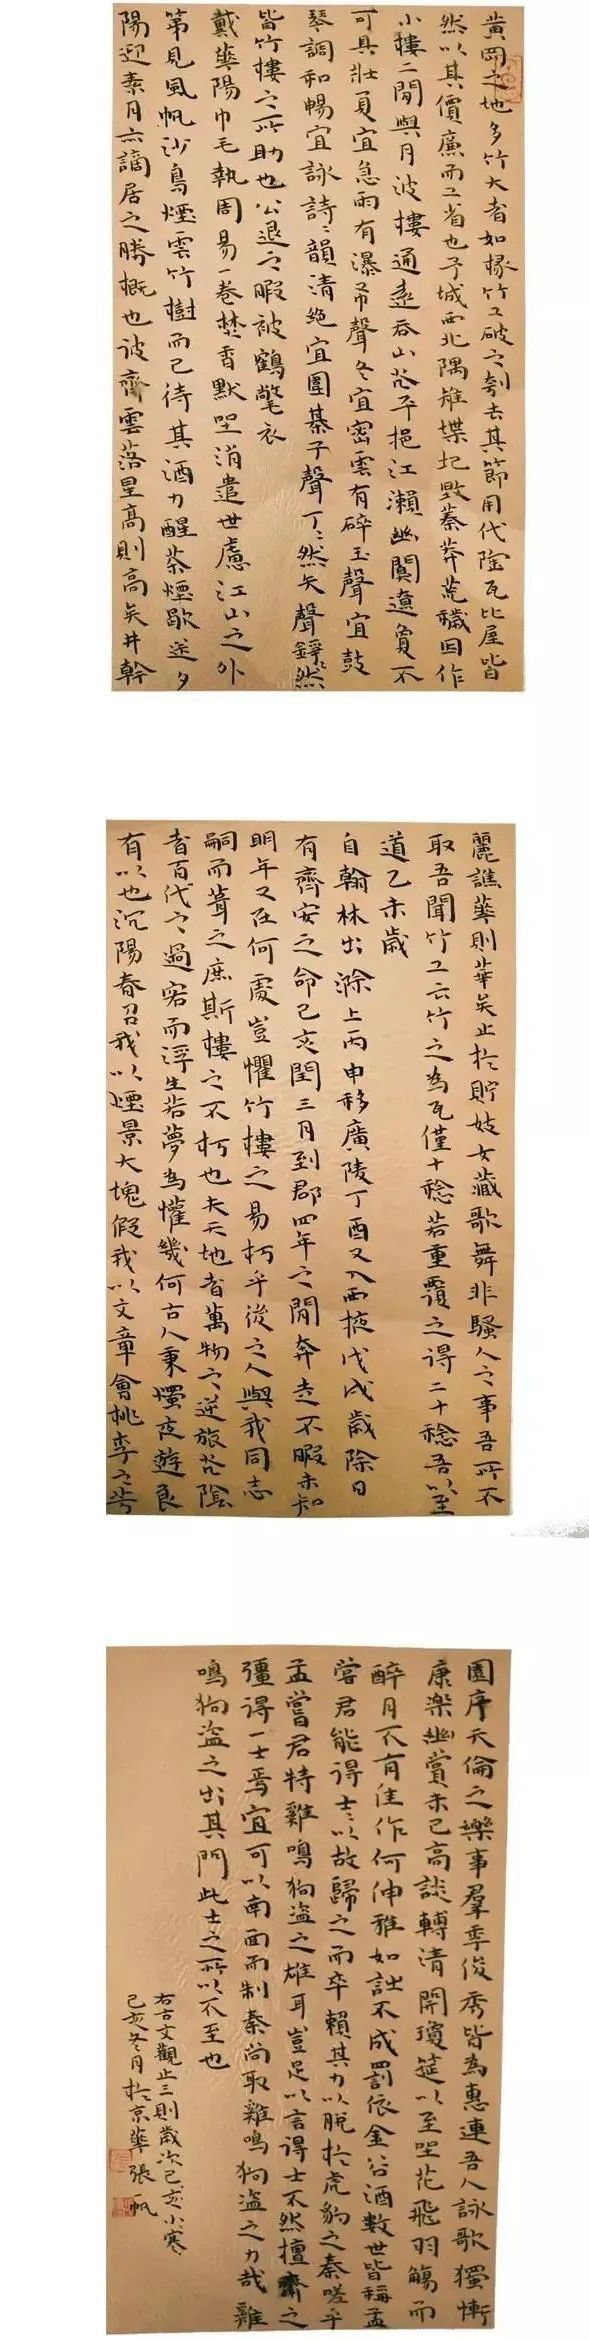 黃岡之地多竹大者如椽竹工破之刳去其節用代陶瓦比屋皆
然以其價廉而工省也予城西北隅雉堞圮毀蓁莽荒穢因作
小樓二間與月波樓通遠吞山光平挹江瀨幽闃遼敻不
可具壯夏宜急雨有瀑布聲冬宜密雪有碎玉聲宜鼓
琴調和暢宜詠詩詩韻清絶宜圍棊子聲丁丁然矢聲錚然
皆竹樓之所助也公退之暇被鶴氅衣
戴華陽巾手執周易一卷焚香默坐消遣世慮江山之外
第見風帆沙鳥煙雲竹樹而已待其酒力醒茶煙歇送夕
陽迎素月亦謫居之勝概也彼齊雲落星高則高矣井幹
麗譙華則華矣止於貯妓女藏歌舞非騷人之事吾所不
取吾聞竹工云竹之為瓦僅十稔若重覆之得二十稔吾以至
道乙未歲
自翰林出滁上丙申移廣陵丁酉又入西掖戊戌歲除日
有齊安之命己亥閏三月到郡四年之間奔走不暇未知
明年又在何處豈懼竹樓之易朽乎後之人與我同志
嗣而葺之庶斯樓之不朽也夫天地者萬物之逆旅光陰
者百代之過客而浮生若夢為懽幾何古人秉燭夜遊良
有以也況陽春召我以煙景大塊假我以文章會桃李之芳
園序天倫之樂事羣季俊秀皆為惠連吾人詠歌獨慚
康樂幽賞未已高談轉清開瓊筵以至坐花飛羽觴而
醉月不有佳作何伸雅如詩不成罰依金谷酒數世皆稱孟
嘗君能得士士以故歸之而卒賴其力以脫於虎豹之秦嗟乎
孟嘗君特雞鳴狗盜之雄耳豈足以言得士不然擅齊之
彊得一士焉宜可以南面而制秦尚取雞鳴狗盜之力哉雞
鳴狗盜之出其門此士之所以不至也
右古文觀止三則歲次己亥小寒
己亥冬月於京華張帆